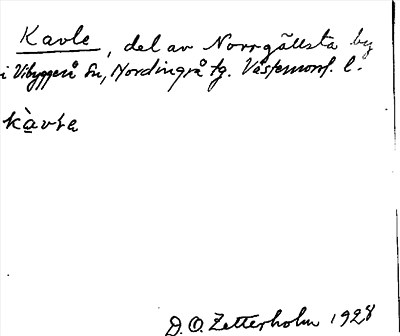 Kavle, del av Norrgällsta by
i Vibyggerå sn, Nordingrå tg. Västernorrl. l.
kàvlɐ
D. O. Zetterholm 1928